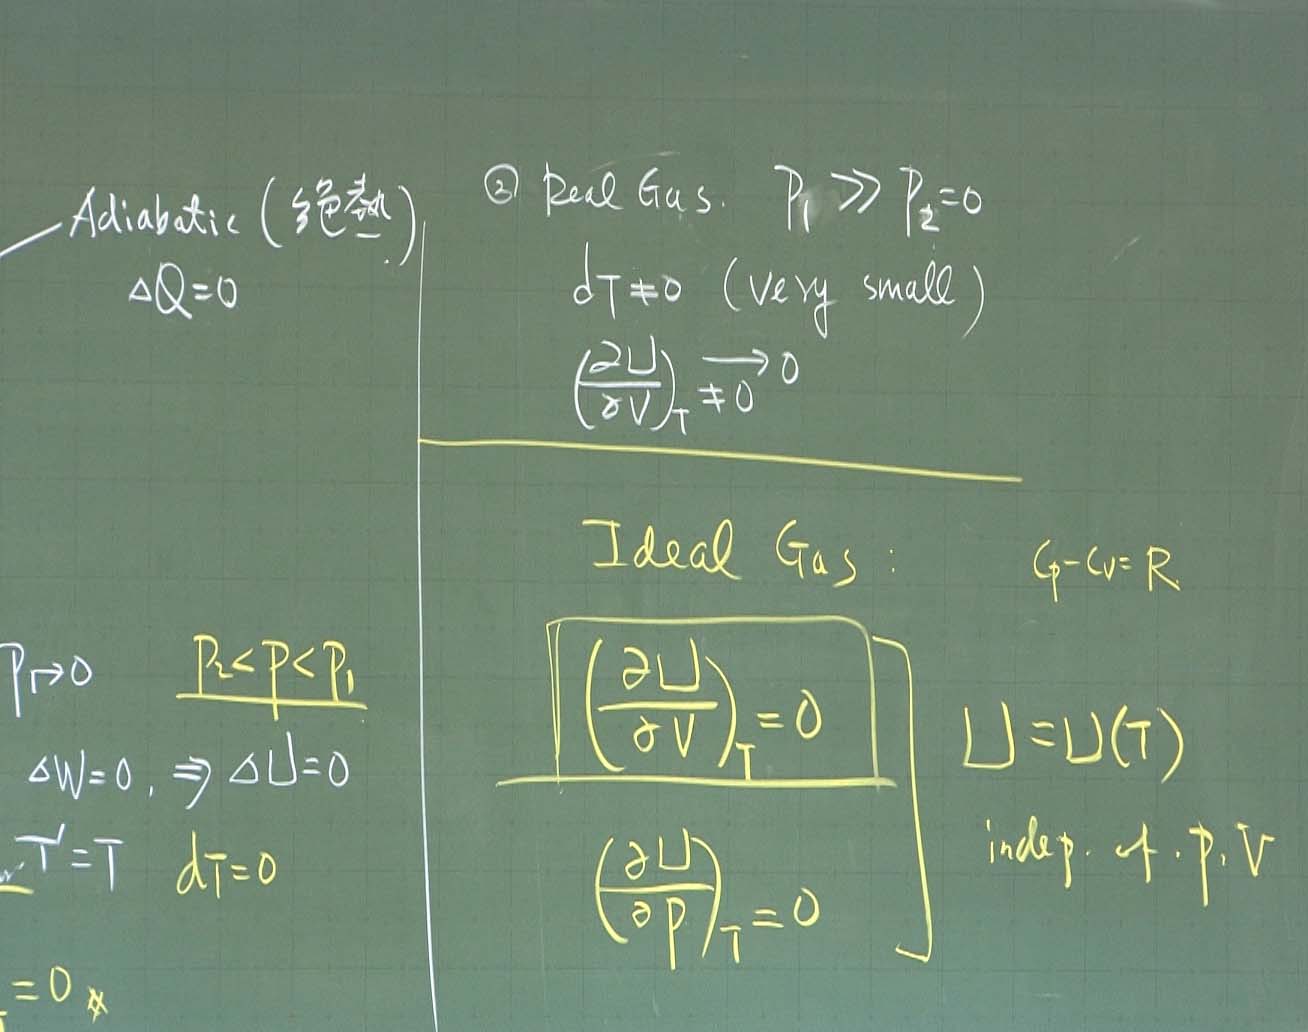 Adiabatic (絕熱)
ΔQ=0
P₁→0
P₂<P<P₁
ΔW=0, ⇒ ΔU=0
T'=T dT=0
=0 *
② Real Gas. P₁ ≫ P₂=0
dT≠0 (very small)
(∂U/∂V)_T ≠0 →0
Ideal Gas :
Cp-Cv=R
(∂U/∂V)_T =0
(∂U/∂P)_T =0
U=U(T)
indep. of. P, V